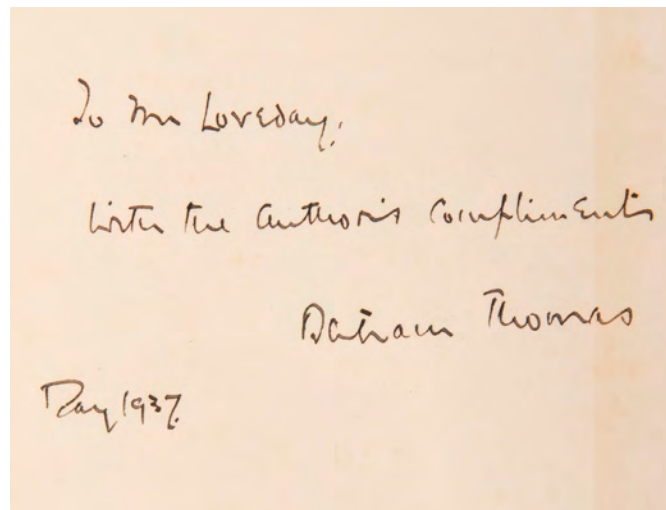 To Mr Loveday.
With the Author's Compliments
Bertram Thomas
May 1937.